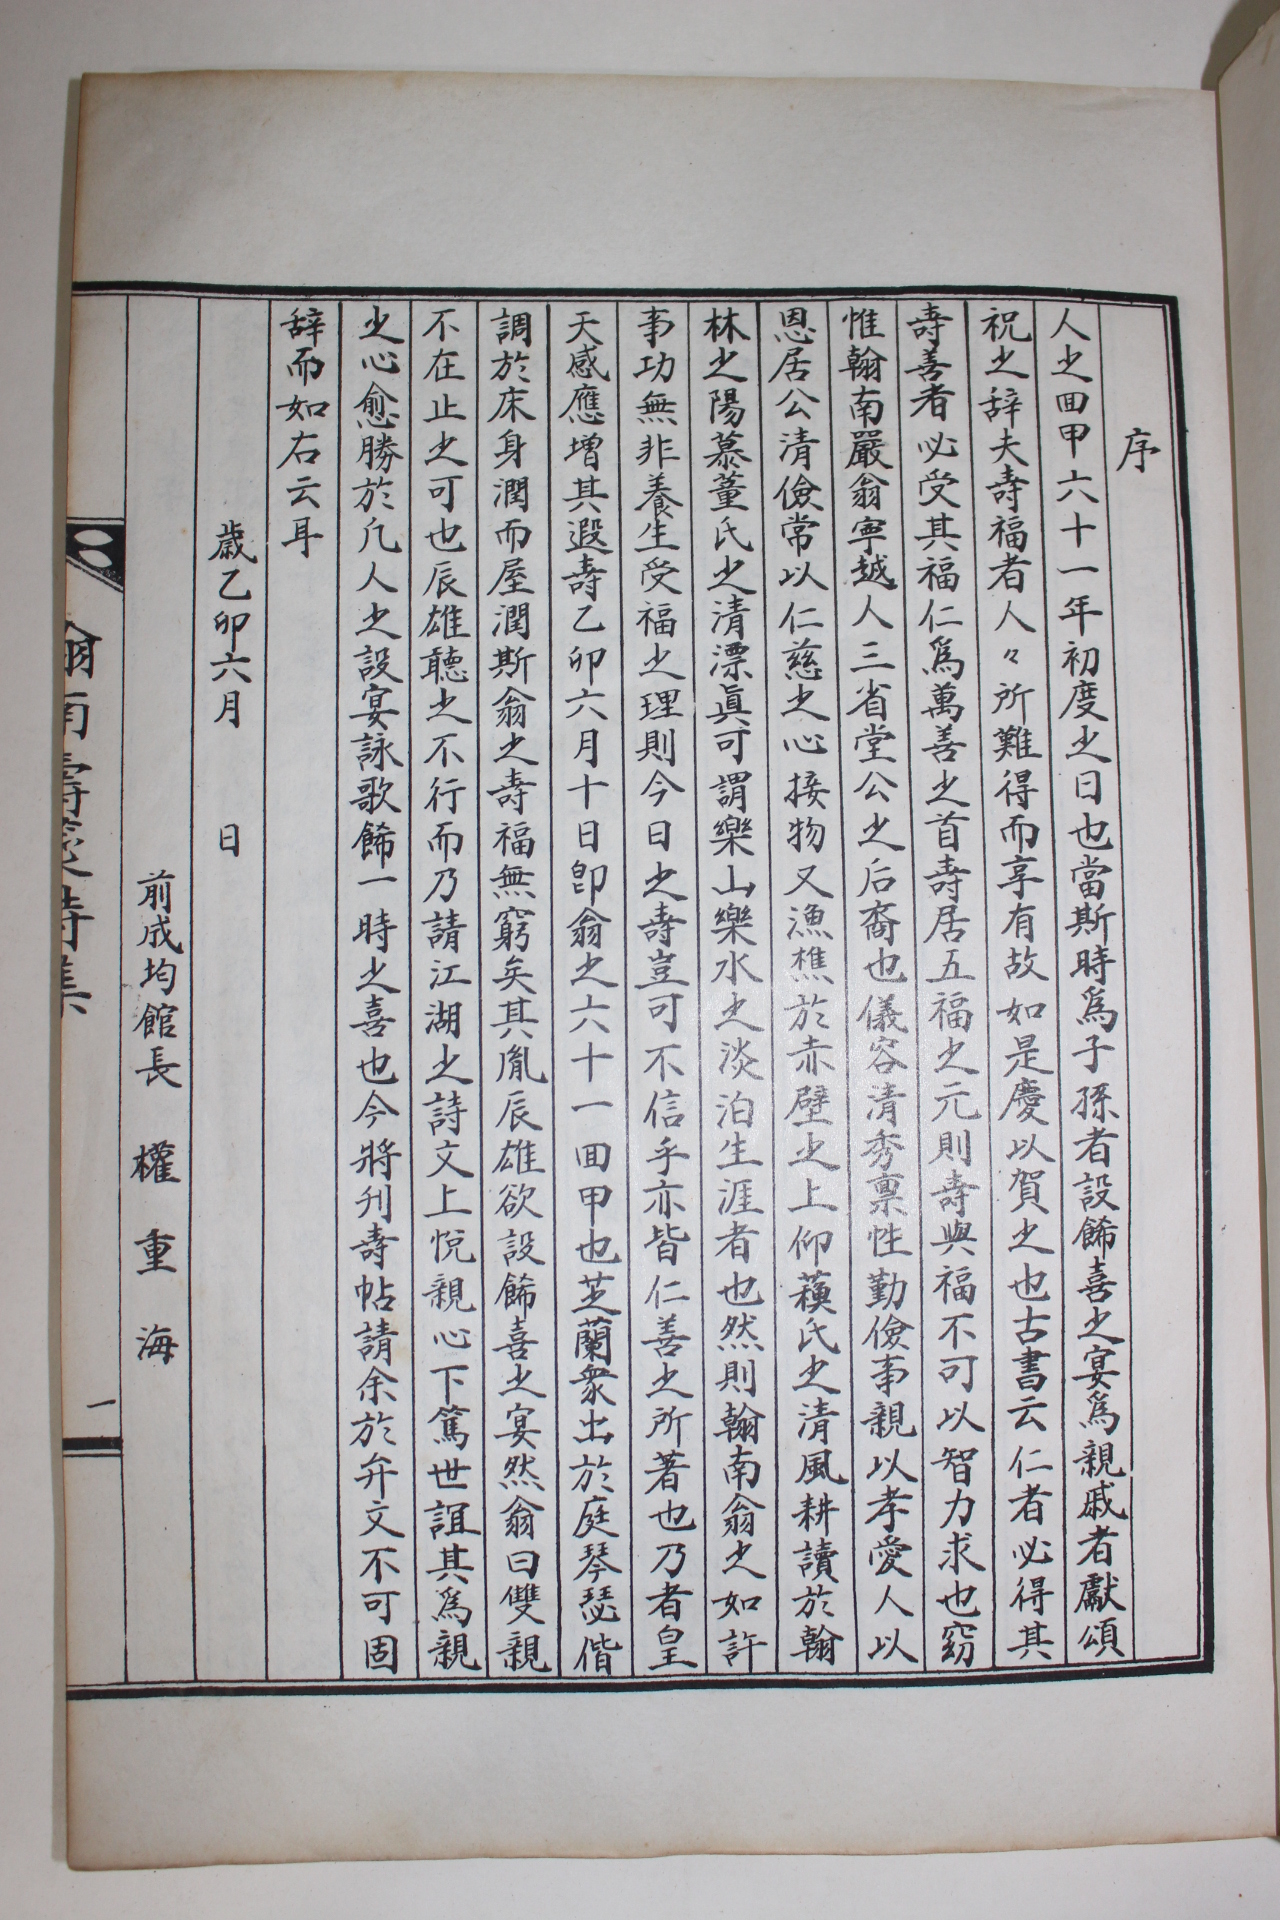 序
人之回甲六十一年初度之日也當斯時爲子孫者設餙喜之宴爲親戚者獻頌
祝之辞夫壽福者人々所難得而享有故如是慶以賀之也古書云仁者必得其
壽善者必受其福仁爲萬善之首壽居五福之元則壽與福不可以智力求也窈
惟翰南嚴翁寧越人三省堂公之后裔也儀容清秀禀性勤儉事親以孝愛人以
恩居公清儉常以仁慈之心接物又漁樵於赤壁之上仰蘓氏之清風耕讀於翰
林之陽慕董氏之清漂眞可謂樂山樂水之淡泊生涯者也然則翰南翁之如許
事功無非養生受福之理則今日之壽豈可不信乎亦皆仁善之所著也乃者皇
天感應增其遐壽乙卯六月十日卽翁之六十一回甲也芝蘭衆出於庭琴瑟偕
調於床身潤而屋潤斯翁之壽福無窮矣其胤辰雄欲設餙喜之宴然翁曰雙親
不在止之可也辰雄聽之不行而乃請江湖之詩文上悅親心下篤世誼其爲親
之心愈勝於凡人之設宴詠歌餙一時之喜也今將刋壽帖請余於弁文不可固
辞而如右云耳
歲乙卯六月　日
前成均館長　權重海
翰南壽筵詩集
一